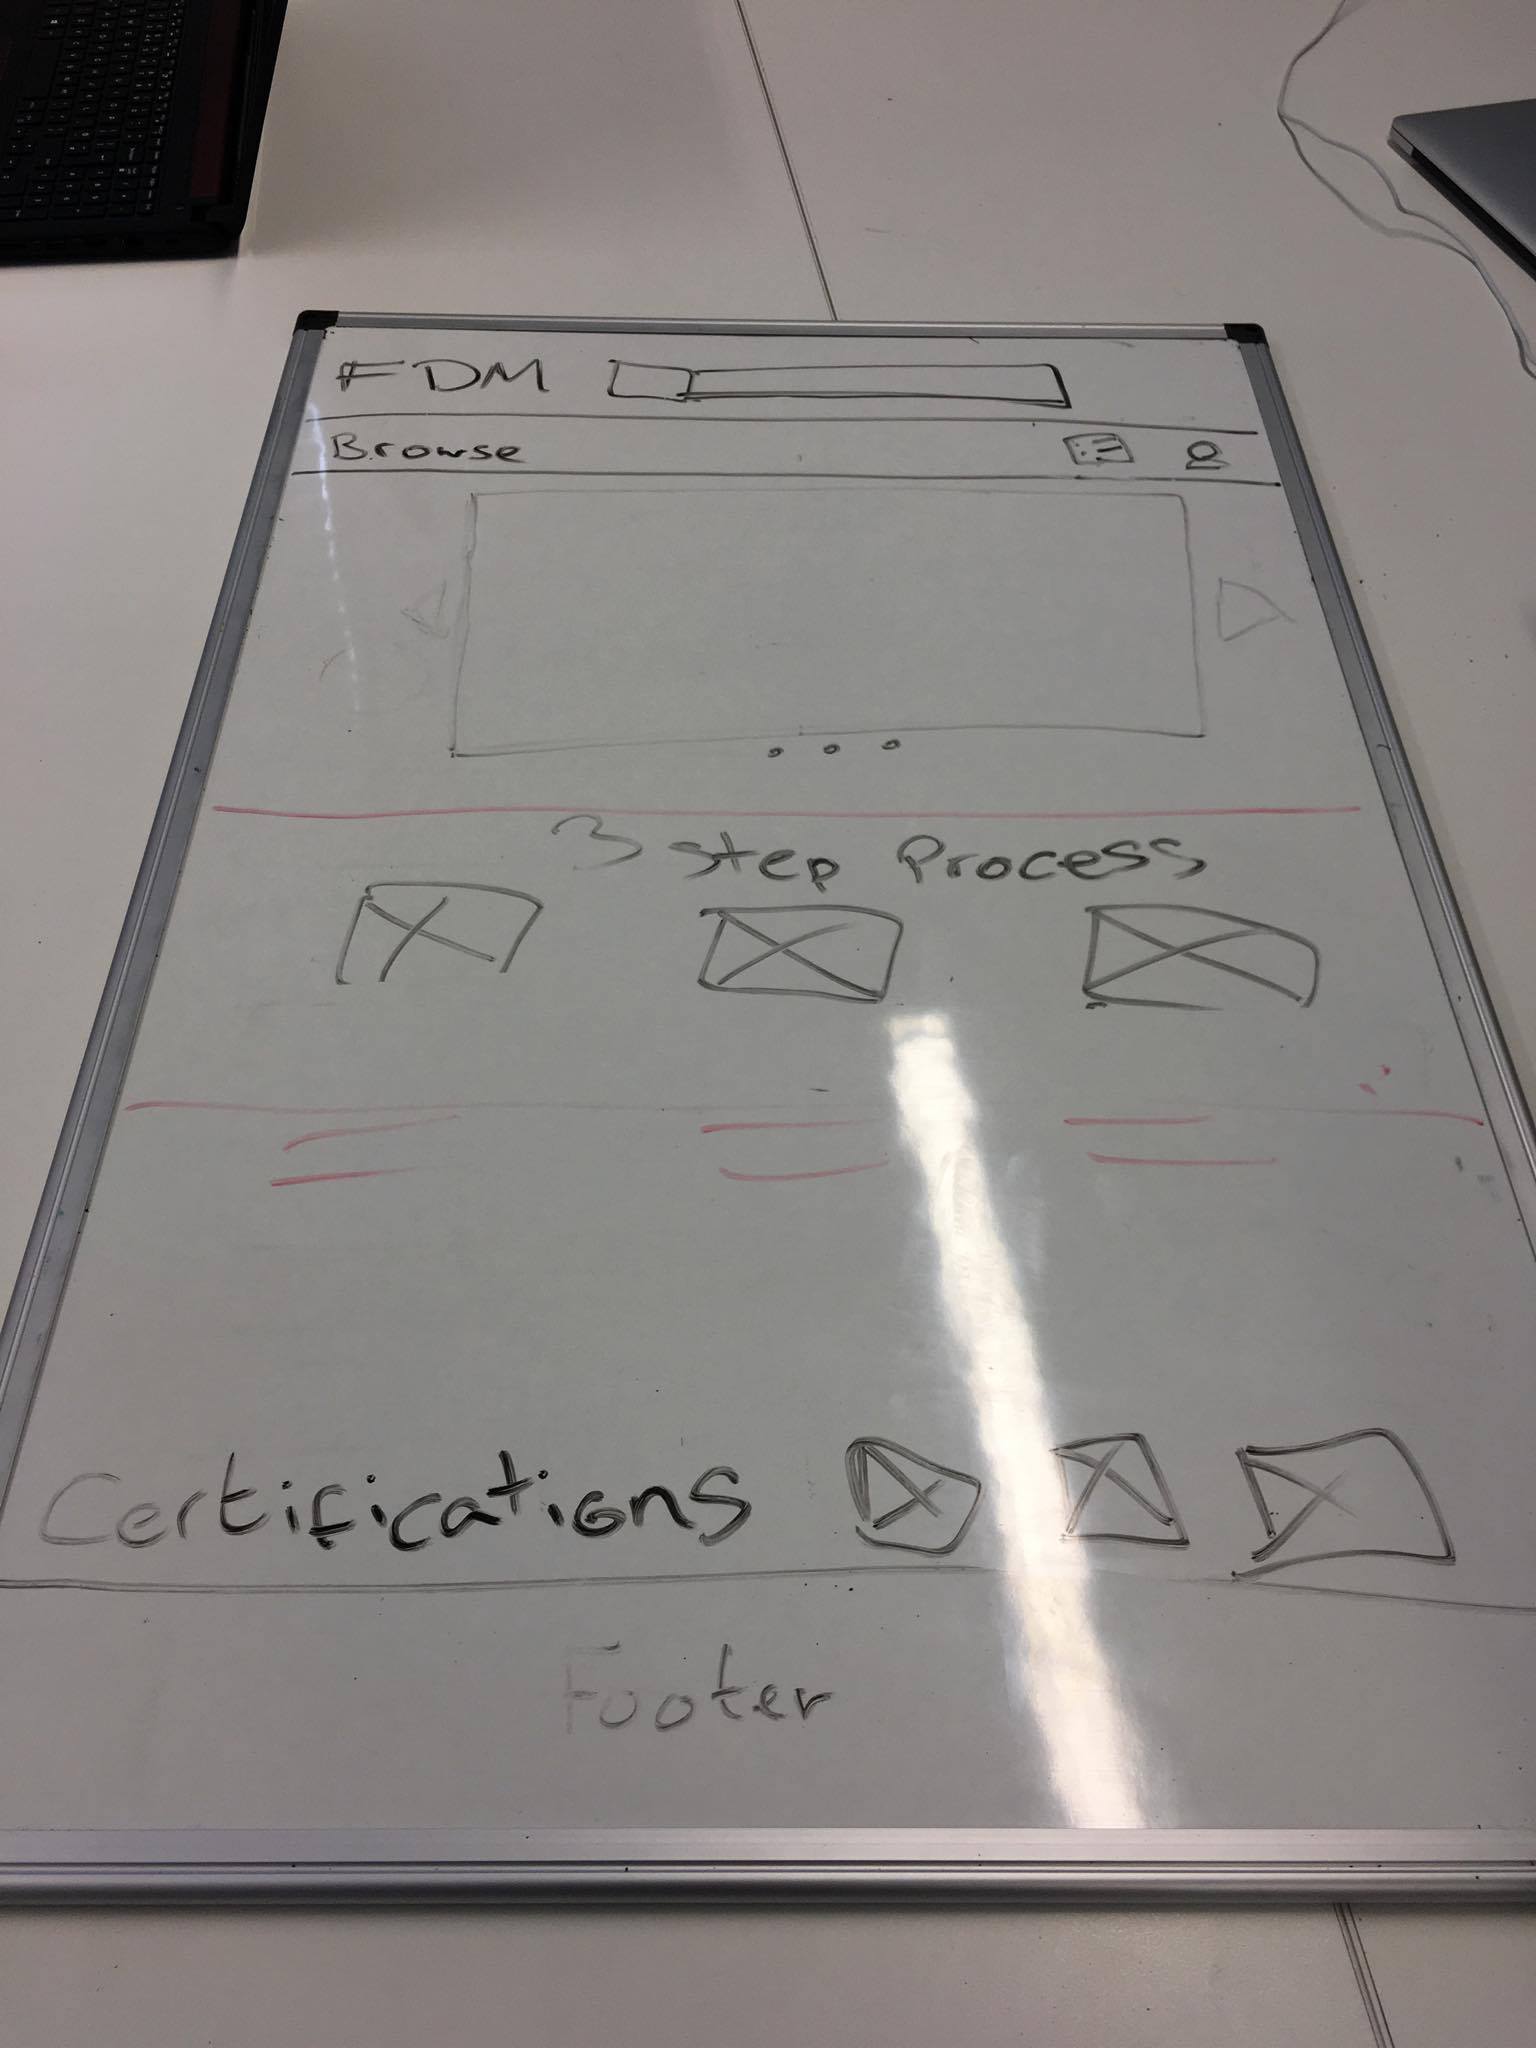 FDM
Browse
3 step Process
Certifications
Footer